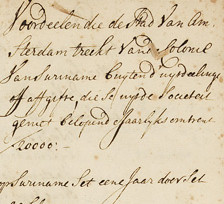 Voordeelen die de Stad Van Am
sterdam trekt Vande Colonie
Van Suriname buyten d'uytdeelinge
off affgifte, die sy uyt de Societeit
geniet belopende Jaarlyks omtrent
20000:-
op Suriname Set eene Jaar door Set